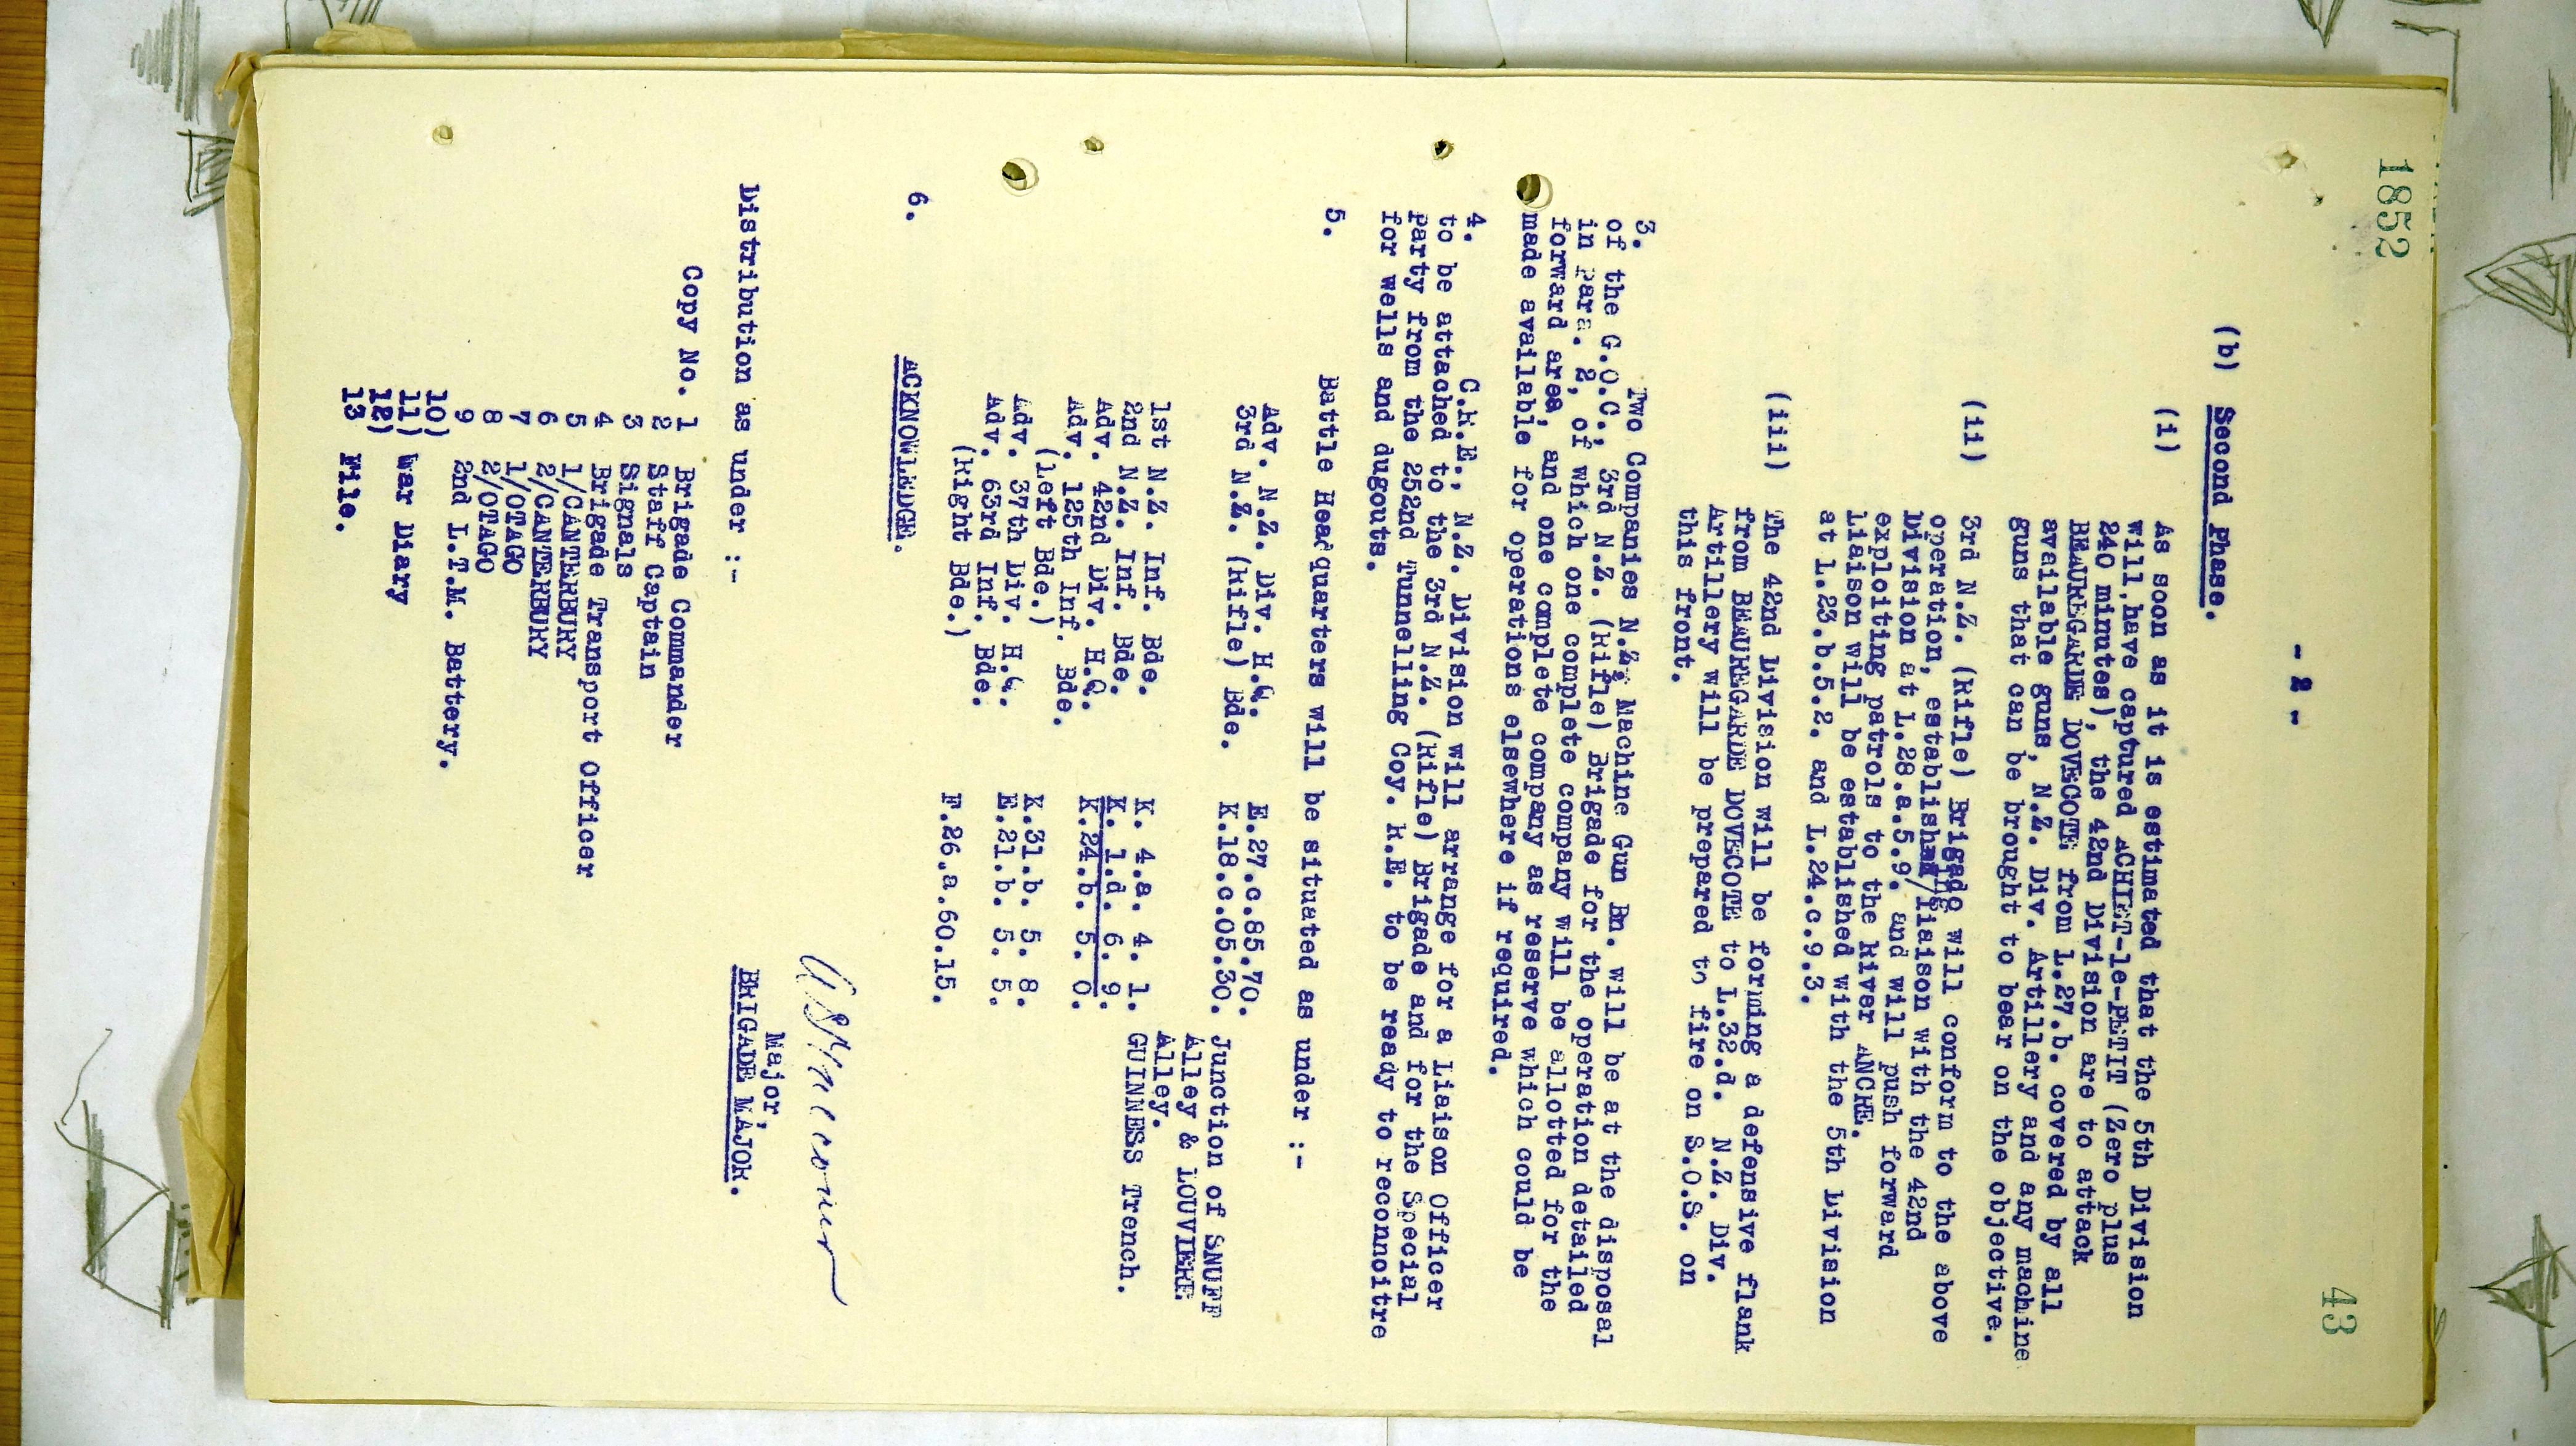 1852
43
- 2 -
(b) Second Phase.
(i) As soon as it is estimated that the 5th Division
will have captured ACHIET-le-PETIT (Zero plus
240 minutes), the 42nd Division are to attack
BEAUREGARDE DOVECOTE from L.27.b. covered by all
available guns, N.Z. Div. Artillery and any machine
guns that can be brought to bear on the objective.
(ii) 3rd N.Z. (Rifle) Brigade will conform to the above
operation, establishing/liaison with the 42nd
Division at L.28.a.5.9. and will push forward
exploiting patrols to the River ANCRE.
Liaison will be established with the 5th Division
at L.23.b.5.2. and L.24.c.9.3.
(iii) The 42nd Division will be forming a defensive flank
from BEAUREGARDE DOVECOTE to L.32.d. N.Z. Div.
Artillery will be prepared to fire on S.O.S. on
this front.
3. Two Companies N.Z. Machine Gun Bn. will be at the disposal
of the G.O.C., 3rd N.Z. (Rifle) Brigade for the operation detailed
in para. 2, of which one complete company will be allotted for the
forward area, and one complete company as reserve which could be
made available for operations elsewhere if required.
4. C.R.E., N.Z. Division will arrange for a Liaison Officer
to be attached to the 3rd N.Z. (Rifle) Brigade and for the Special
party from the 252nd Tunnelling Coy. R.E. to be ready to reconnoitre
for wells and dugouts.
5. Battle Headquarters will be situated as under :-
Adv. N.Z. Div. H.Q. E.27.c.85.70.
3rd N.Z. (Rifle) Bde. K.18.c.05.30. Junction of SNUFF
Alley & LOUVIERE
Alley.
1st N.Z. Inf. Bde. K. 4.a. 4. 1. GUINNESS Trench.
2nd N.Z. Inf. Bde. K. 1.d. 6. 9.
Adv. 42nd Div. H.Q. K.24.b. 5. 0.
Adv. 125th Inf. Bde.
(Left Bde.) K.31.b. 5. 8.
Adv. 37th Div. H.Q. E.21.b. 5. 5.
Adv. 63rd Inf. Bde.
(Right Bde.) F.26.a.60.15.
6. ACKNOWLEDGE.
Major,
BRIGADE MAJOR.
Distribution as under :-
Copy No. 1 Brigade Commander
2 Staff Captain
3 Signals
4 Brigade Transport Officer
5 1/CANTERBURY
6 2/CANTERBURY
7 1/OTAGO
8 2/OTAGO
9 2nd L.T.M. Battery.
10)
11) War Diary
12)
13 File.